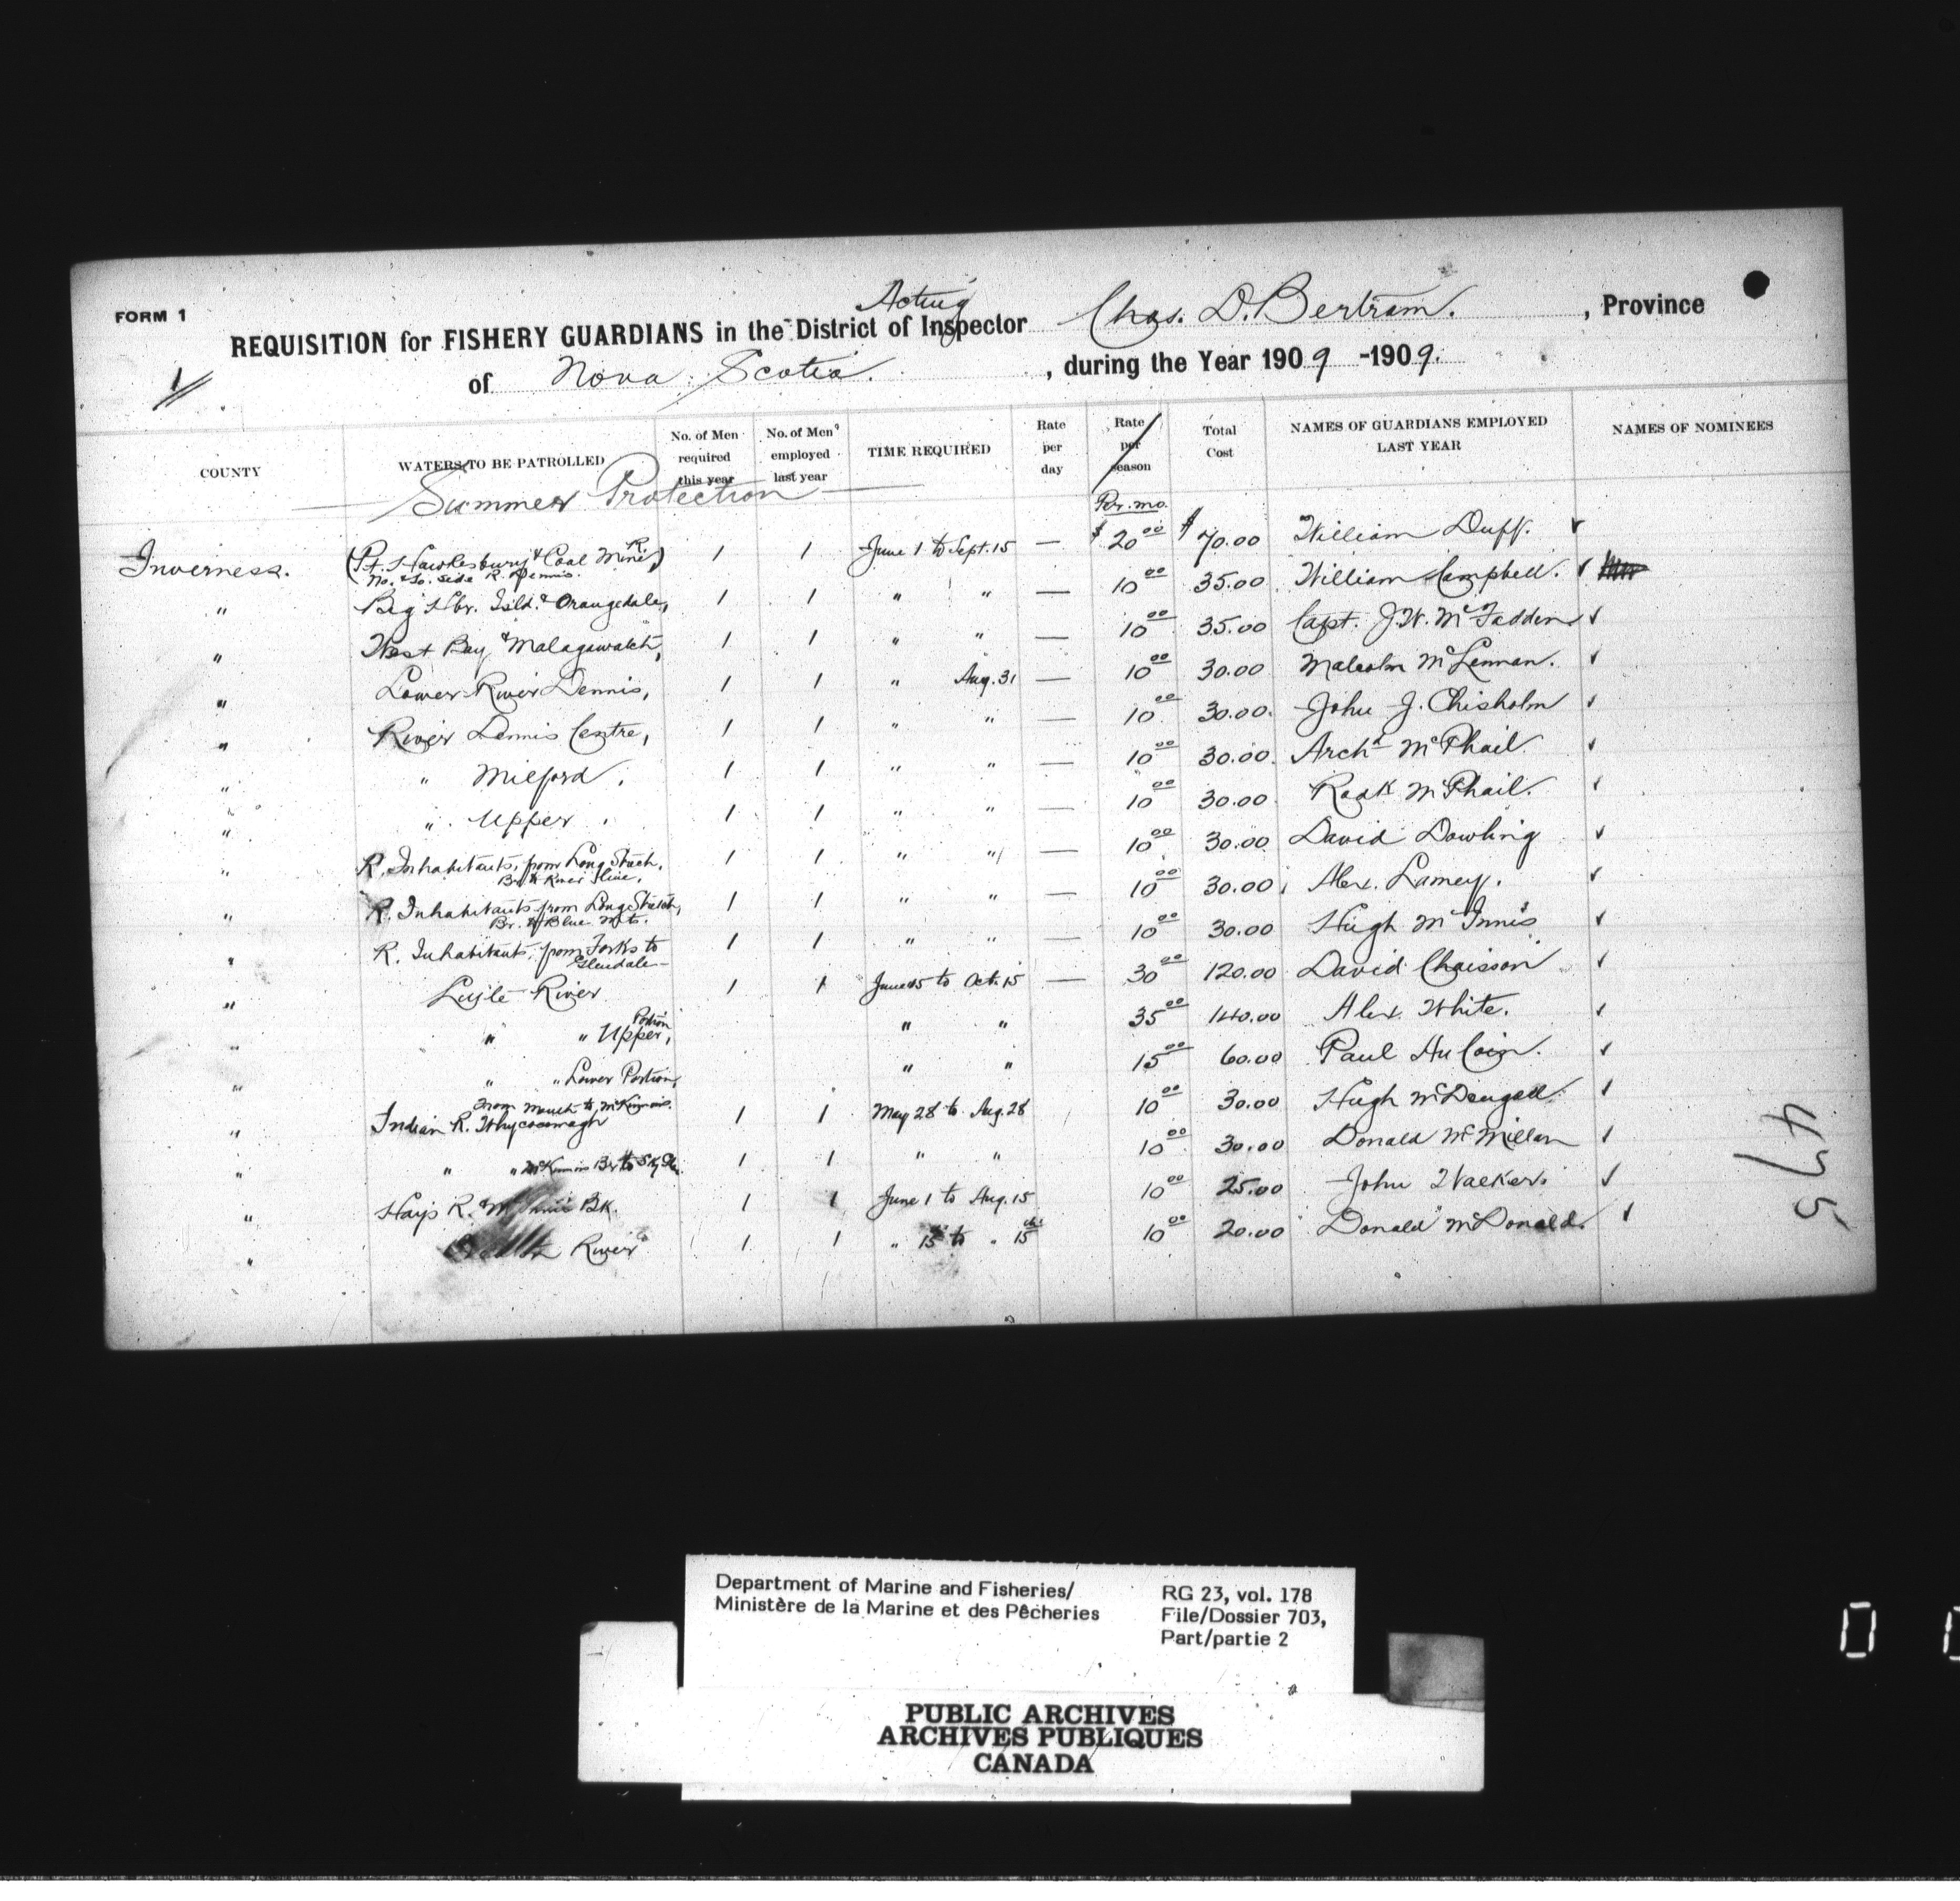 FORM 1
Acting
REQUISITION for FISHERY GUARDIANS in the District of Inspector Chas. D. Bertram. , Province
1
of Nova Scotia. , during the Year 1909 -1909.
COUNTY WATERS TO BE PATROLLED No. of Men required this year No. of Men employed last year TIME REQUIRED Rate per day Rate per season Total Cost NAMES OF GUARDIANS EMPLOYED LAST YEAR NAMES OF NOMINEES
Summer Protection
Per. mo.
Inverness. (Pt. Hawkesbury & Coal Mine R.) 1 1 June 1 to Sept. 15 — $20 00 $70.00 William Duff. ✓
No. & So. side R. Dennis.
" Big Hbr. Isld. & Orangedale, 1 1 " " — 10 00 35.00 William Campbell. ✓
" West Bay & Malagawatch, 1 1 " " — 10 00 35.00 Capt. J.W. McFadden ✓
" Lower River Dennis, 1 1 " Aug. 31 — 10 00 30.00 Malcolm McLennan. ✓
" River Dennis Centre, 1 1 " " — 10 00 30.00. John J. Chisholm ✓
" " Milford, 1 1 " " — 10 00 30.00. Archd McPhail. ✓
" " Upper . 1 1 " " — 10 00 30.00 McPhail. ✓
" R. Inhabitants, from Long Stretch, 1 1 " " — 10 00 30.00 David Dowling ✓
Br. to River
" R. Inhabitants from Long Stretch, 1 1 " " 10 00 30.00 Alex. Lamey. ✓
Br. to Blue Mts.
" R. Inhabitants, from Forks to 1 1 " " — 10 00 30.00 Hugh McInnis ✓
Glendale
" River 1 1 June 15 to Oct. 15 — 30 00 120.00 David Chaisson ✓
" " " Upper, Portion " " 35 00 140.00 Alex. White. ✓
" " " Lower Portion, " " 15 00 60.00 Paul ✓
from mouth to McKinnons.
" Indian R. Whycocomagh 1 1 May 28 to Aug. 28 10 00 30.00 Hugh McDougall. ✓
" " " McKinnons Br. to 1 1 " " 10 00 30.00 Donald McMillan ✓
" Hays R. & Bk. 1 1 June 1 to Aug. 15 10 00 25.00 John Walker. ✓
" River 1 1 " 15 to " 15 10 00 20.00 Donald McDonald. ✓
475
Department of Marine and Fisheries/
Ministère de la Marine et des Pêcheries
RG 23, vol. 178
File/Dossier 703,
Part/partie 2
PUBLIC ARCHIVES
ARCHIVES PUBLIQUES
CANADA